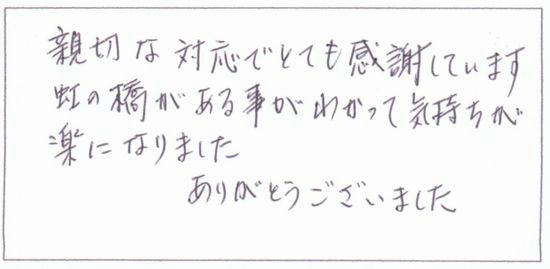 親切な対応でとても感謝しています
虹の橋がある事がわかって気持ちが
楽になりました
ありがとうございました